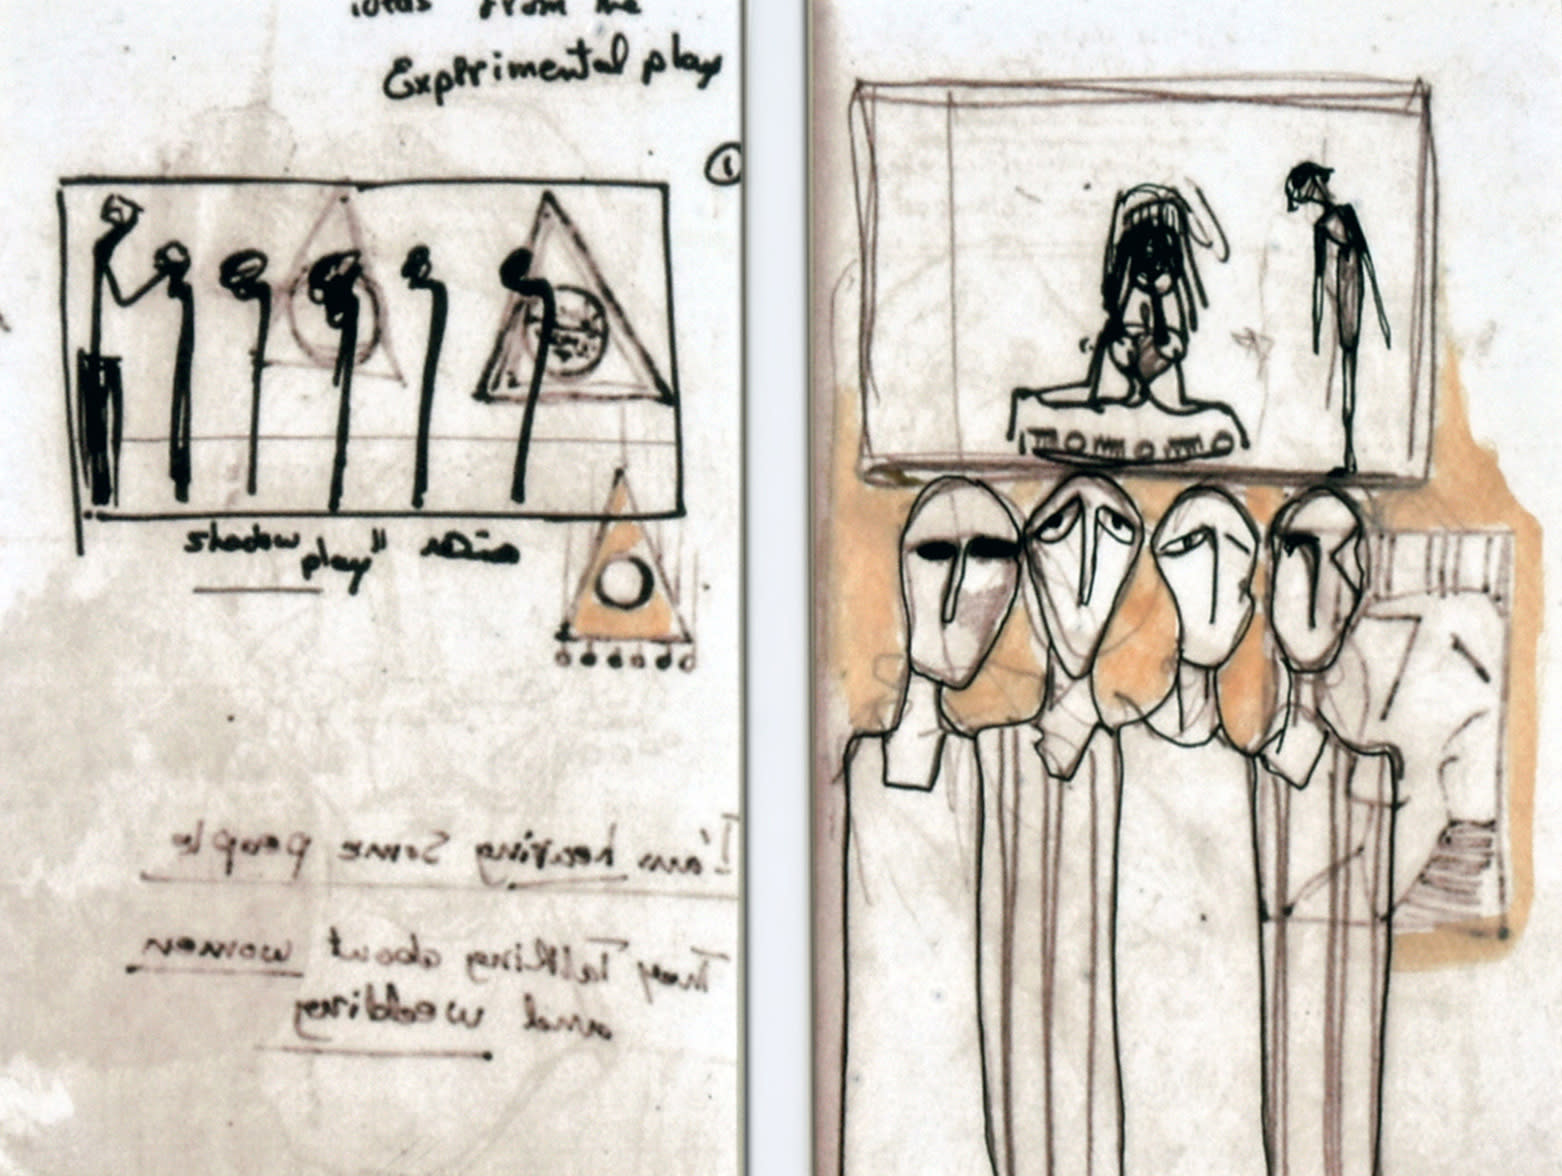 ideas from the
Experimental play
1
shadow
play"
I'am hearing some people
They Talking about women
and wedding